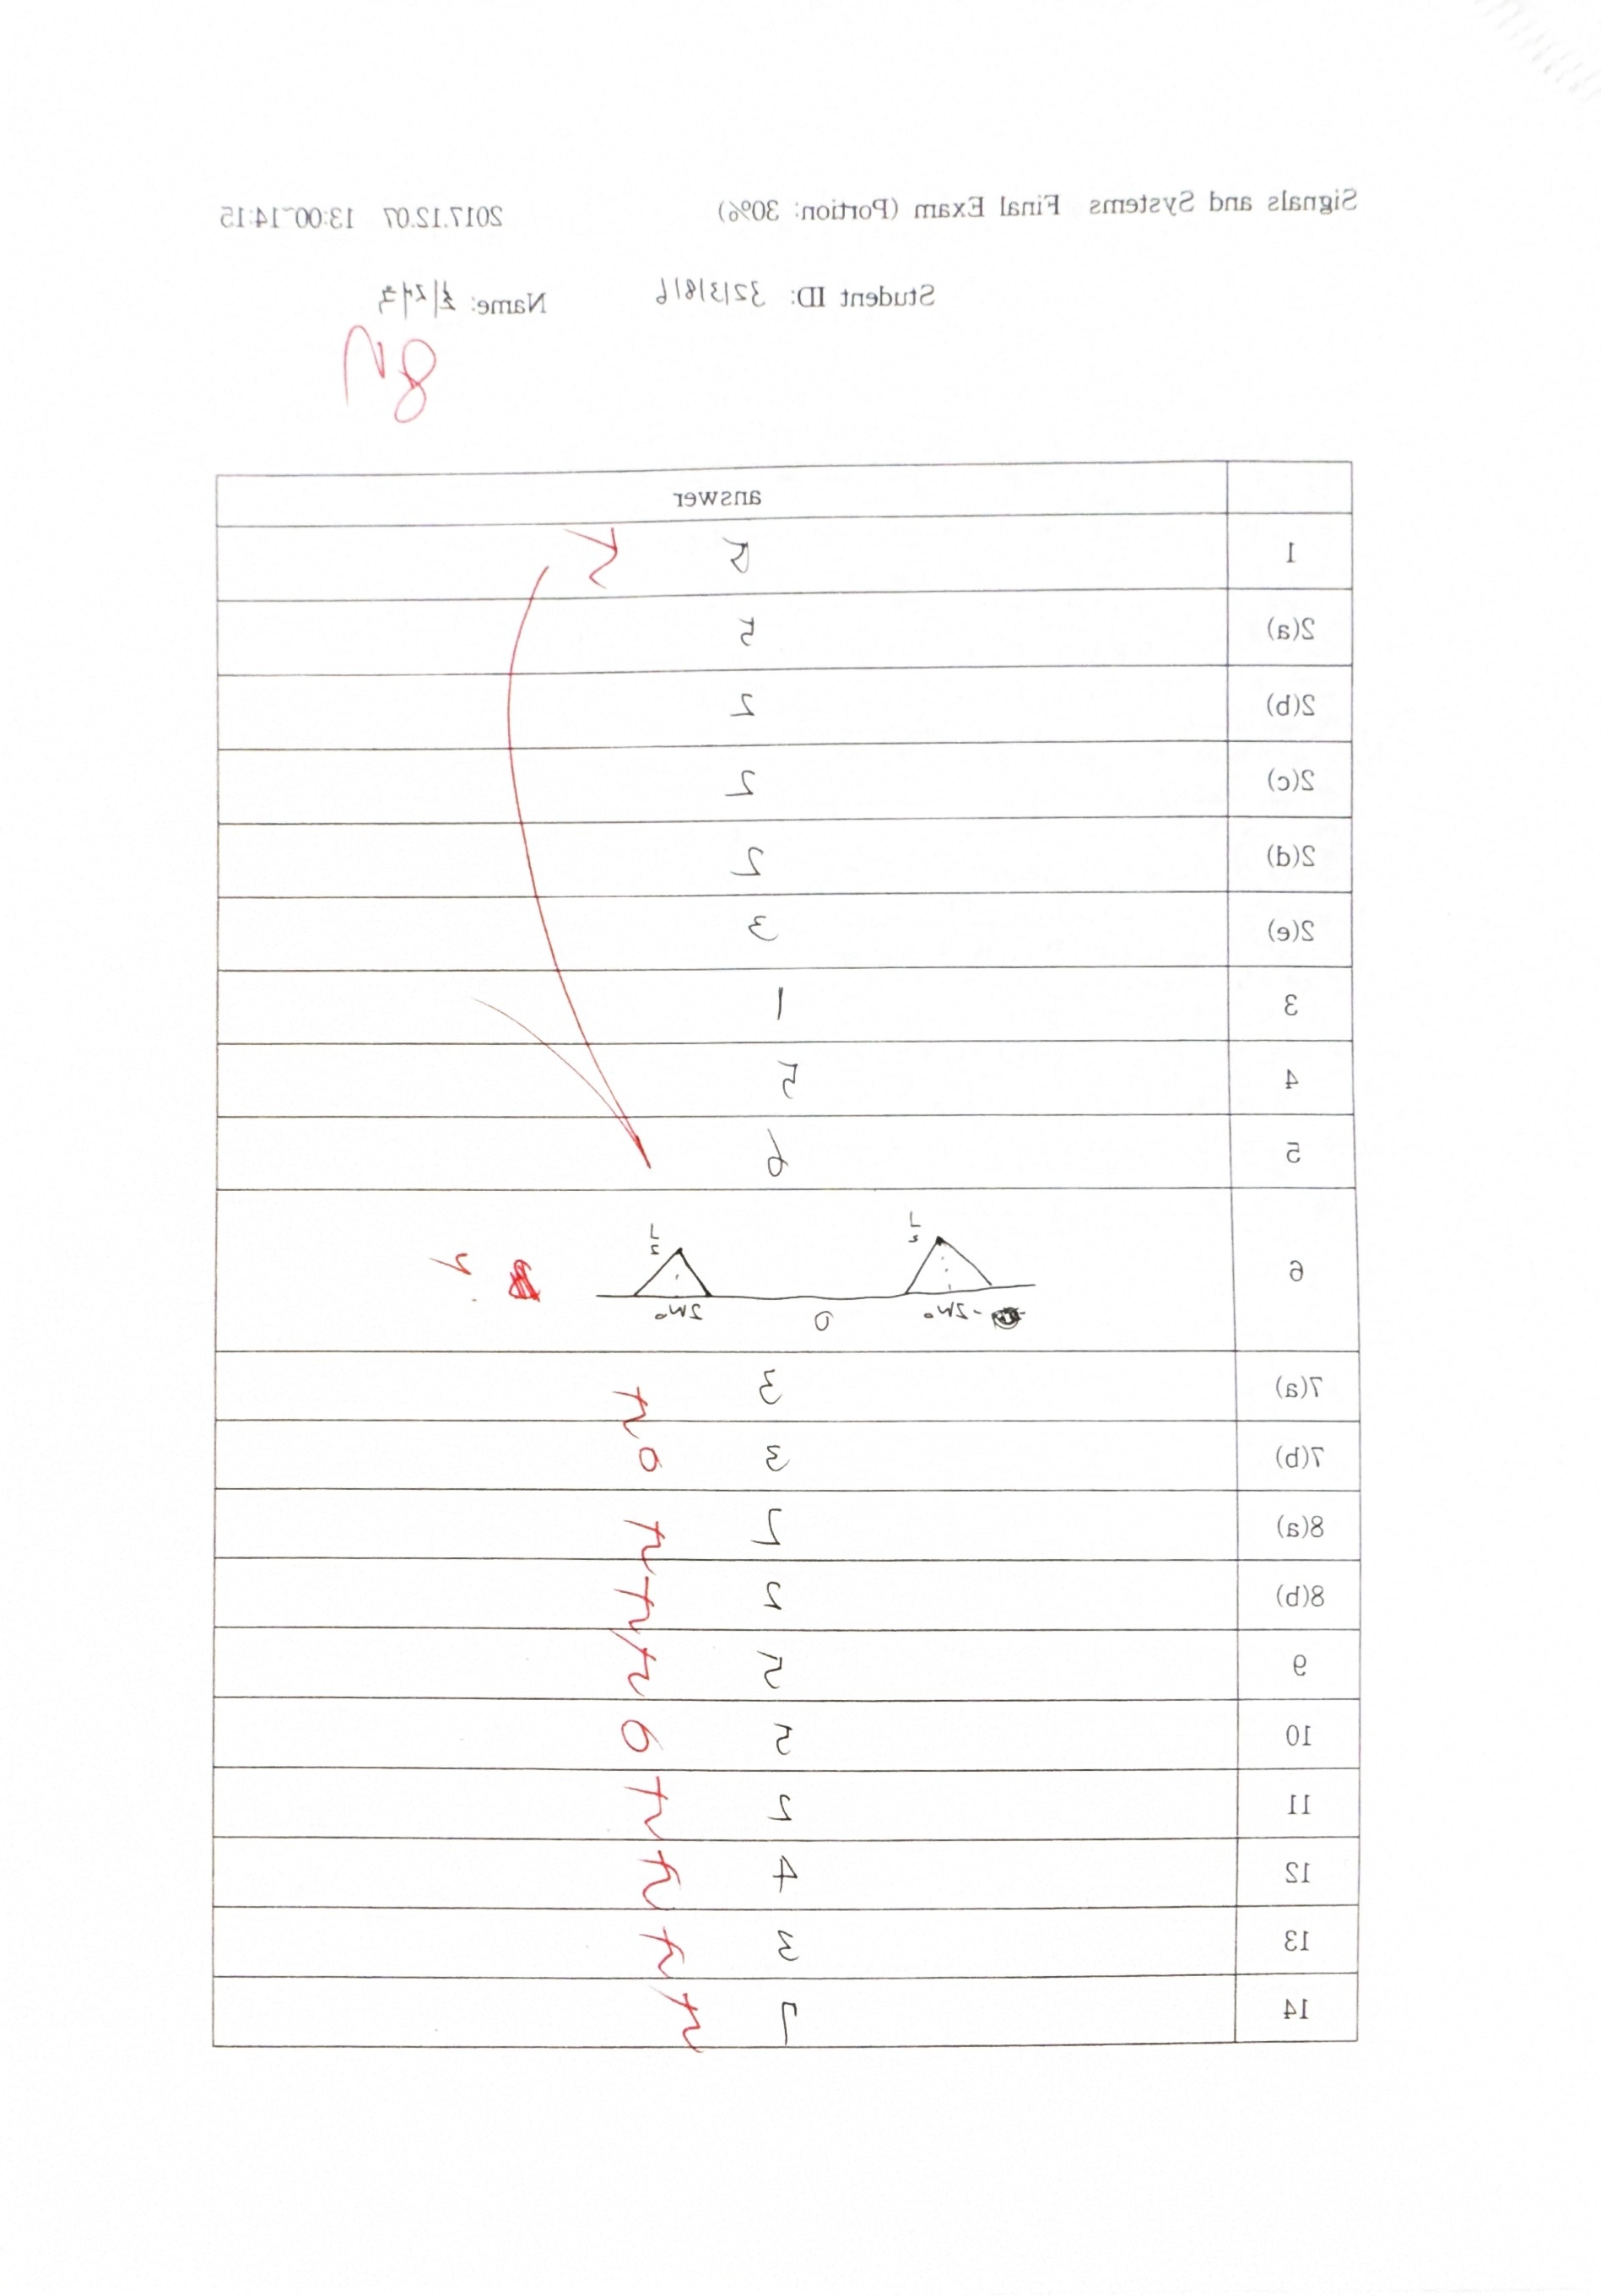 Signals and Systems Final Exam (Portion: 30%) 2017.12.07 13:00~14:15
Student ID: 32131816 Name:
answer
1 5 5
2(a) 5
2(b) 2
2(c) 2
2(d) 2
2(e) 3
3 1
4 5
5 6
6 -2W0 0 2W0
7(a) 3 5
7(b) 3 0
8(a) 2 5
8(b) 2 5
9 5 5
10 5 0
11 2 5
12 4 5
13 3 5
14 5